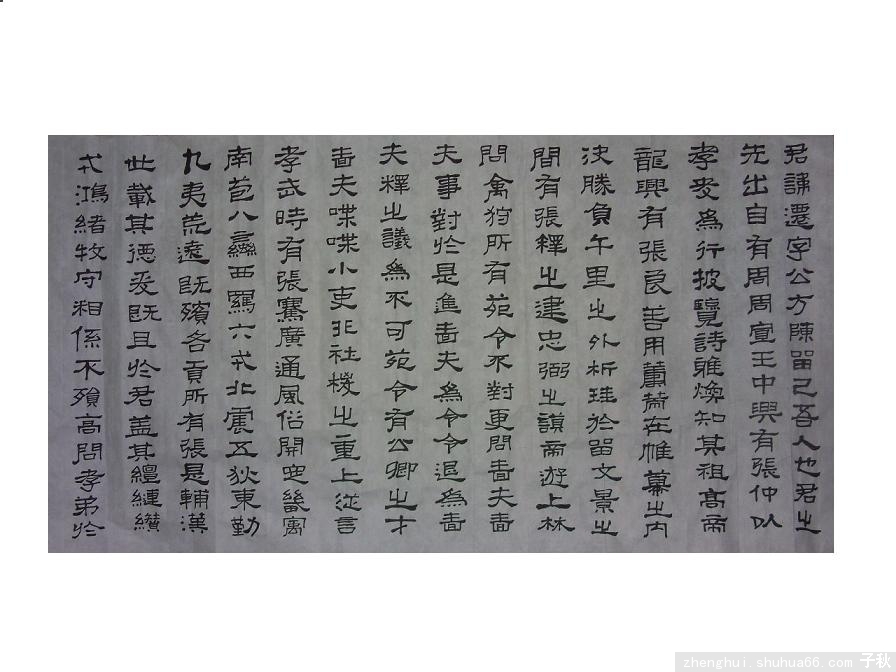 君諱遷字公方陳留己吾人也君之
先出自有周周宣王中興有張仲以
孝友為行披覽詩雅煥知其祖高帝
龍興有張良善用籌策在帷幕之內
決勝負千里之外析珪於留文景之
間有張釋之建忠弼之謨帝遊上林
問禽狩所有苑令不對更問嗇夫嗇
夫事對於是進嗇夫為令令退為嗇
夫釋之議為不可苑令有公卿之才
嗇夫喋喋小吏非社稷之重上從言
孝武時有張騫廣通風俗開定畿寓
南苞八蠻西羈六戎北震五狄東勤
九夷荒遠既殯各貢所有張是輔漢
世載其德爰既且於君蓋其繵縺纘
戎鴻緒牧守相係不殞高問孝弟於
zhenghui.shuhua66.com 子秋